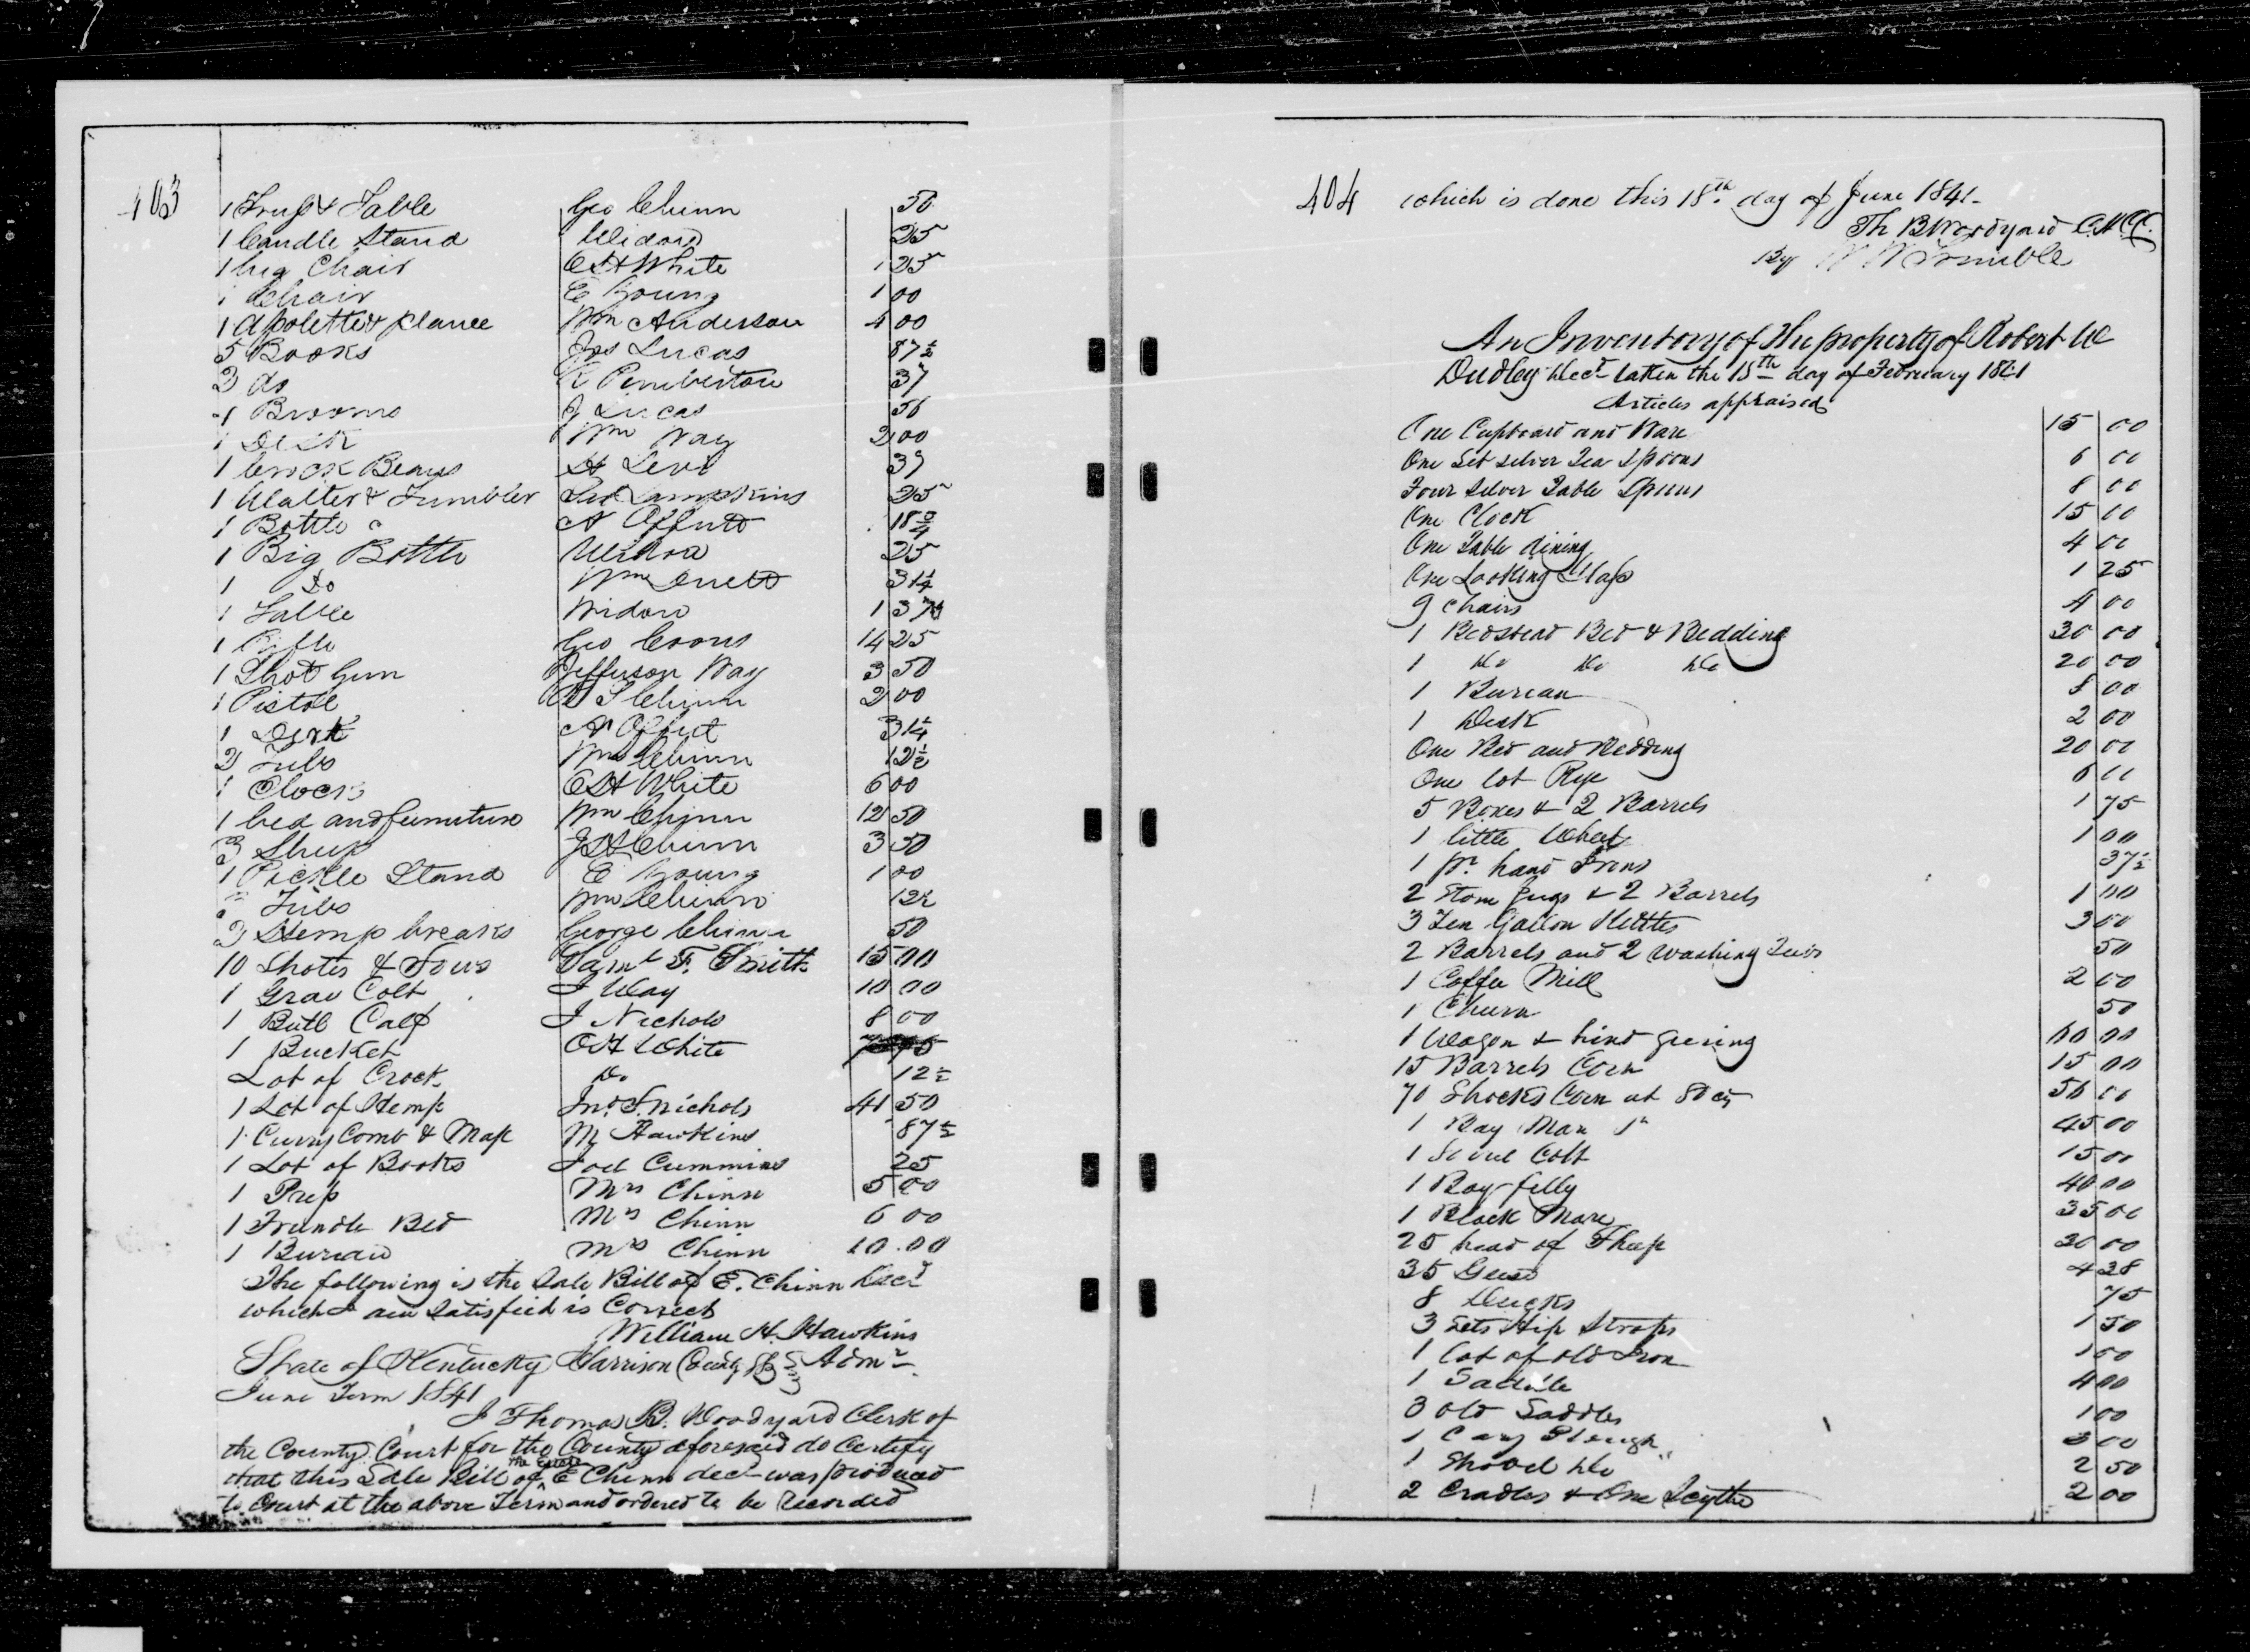 403
1 Trup & Table Geo Chinn 50
1 Candle Stand Widow 25
1 big Chair C H White 1 25
1 Chair E Young 1 00
1 Wm Anderson 4 00
5 Books Jos Lucas 87 1/2
2 do R Pemberton 37
4 Brooms J Lucas 56
1 Desk Wm Way 2 00
1 Crock Beans H Levi 37
1 Waiter & Tumbler Lampkins 25
1 Bottle A Offutt 18 3/4
1 Big Bottle Widow 25
1 Do Wm 31 1/4
1 Table Widow 1 37 1/2
1 Rifle Geo Coons 14 25
1 Shot Gun Jefferson Way 3 50
1 Pistol S Chinn 2 00
1 Dirk A Offut 31 1/4
2 Tubs Wm Chinn 12 1/2
1 Clock C H White 6 00
1 bed and furniture Wm Chinn 12 50
3 Sheep J H Chinn 3 50
1 Pickle Stand E Young 1 00
2 Tubs Wm Chinn 12 1/2
2 Hemp breaks George Chinn 50
10 Shotes & Sows Saml F. Smith 15 00
1 Gray Colt J Way 10 00
1 Bull Calf J Nichols 8 00
1 Bucket C H White
Lot of Crock. Do 12 1/2
1 Lot of Hemp Jno. S. Nichols 41 50
1 Curry Comb & Map M Hawkins 87 1/2
1 Lot of Books Joel Cummins 25
1 Press Mrs Chinn 5 00
1 Trundle Bed Mrs Chinn 6 00
1 Bureau Mrs Chinn 10.00
The following is the Sale Bill of E. Chinn Decd
which I am Satisfied is Correct
William H. Hawkins
Admr
State of Kentucky Harrison County Sct
June Term 1841
I Thomas B. Woodyard Clerk of
the County Court for the County aforesaid do Certify
that this Sale Bill of the Estate E Chinn decd was produced
to Court at the above Term and ordered to be Recorded
404
which is done this 18th day of June 1841-
Th B Woodyard C.H.C.C.
By W W Trimble
An Inventory of the property of Robert W
Dudley Decd taken the 15th day of February 1841
Articles appraised
One Cupboard and Ware 15 00
One Set silver Tea Spoons 6 00
Four Silver Table Spoons 8 00
One Clock 15 00
One Table dining 4 00
One Looking Glass 1 25
9 Chairs 4 00
1 Bedstead Bed & Bedding 30 00
1 Do Do Do 20 00
1 Bureau 8 00
1 Desk 2 00
One Bed and Bedding 20 00
One lot Rye 6 00
5 Boxes & 2 Barrels 1 75
1 little Wheel 1 00
1 pr. hand Irons 37 1/2
2 Stone Jugs & 2 Barrels 1 00
3 Ten Gallon Kettles 3 00
2 Barrels and 2 washing Tubs 50
1 Coffee Mill 2 00
1 Churn 50
1 Wagon & hind Geering 60 00
15 Barrels Corn 15 00
70 Shocks Corn at 80 cts 56 00
1 Bay Mare 45 00
1 Colt 15 00
1 Bay filly 40 00
1 Black Mare 35 00
25 head of Sheep 30 00
35 Geese 4 38
8 Ducks 75
3 sets Hip Straps 1 50
1 lot of old Iron 1 00
1 Saddle 4 00
3 old Saddles 1 00
1 Cary Plough 3 00
1 Shovel Do " 2 50
2 Cradles & One Scythe 2 00